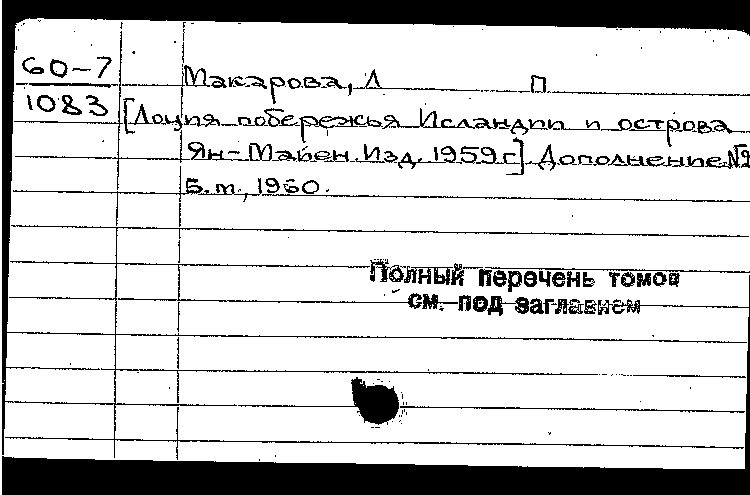 60-7
Макарова, Л П
1083
[Лоция побережья Исландии и острова
Ян-Майен. Изд. 1959г.] Дополнение №2
Б.м., 1960.
Полный перечень томов
см. под заглавием